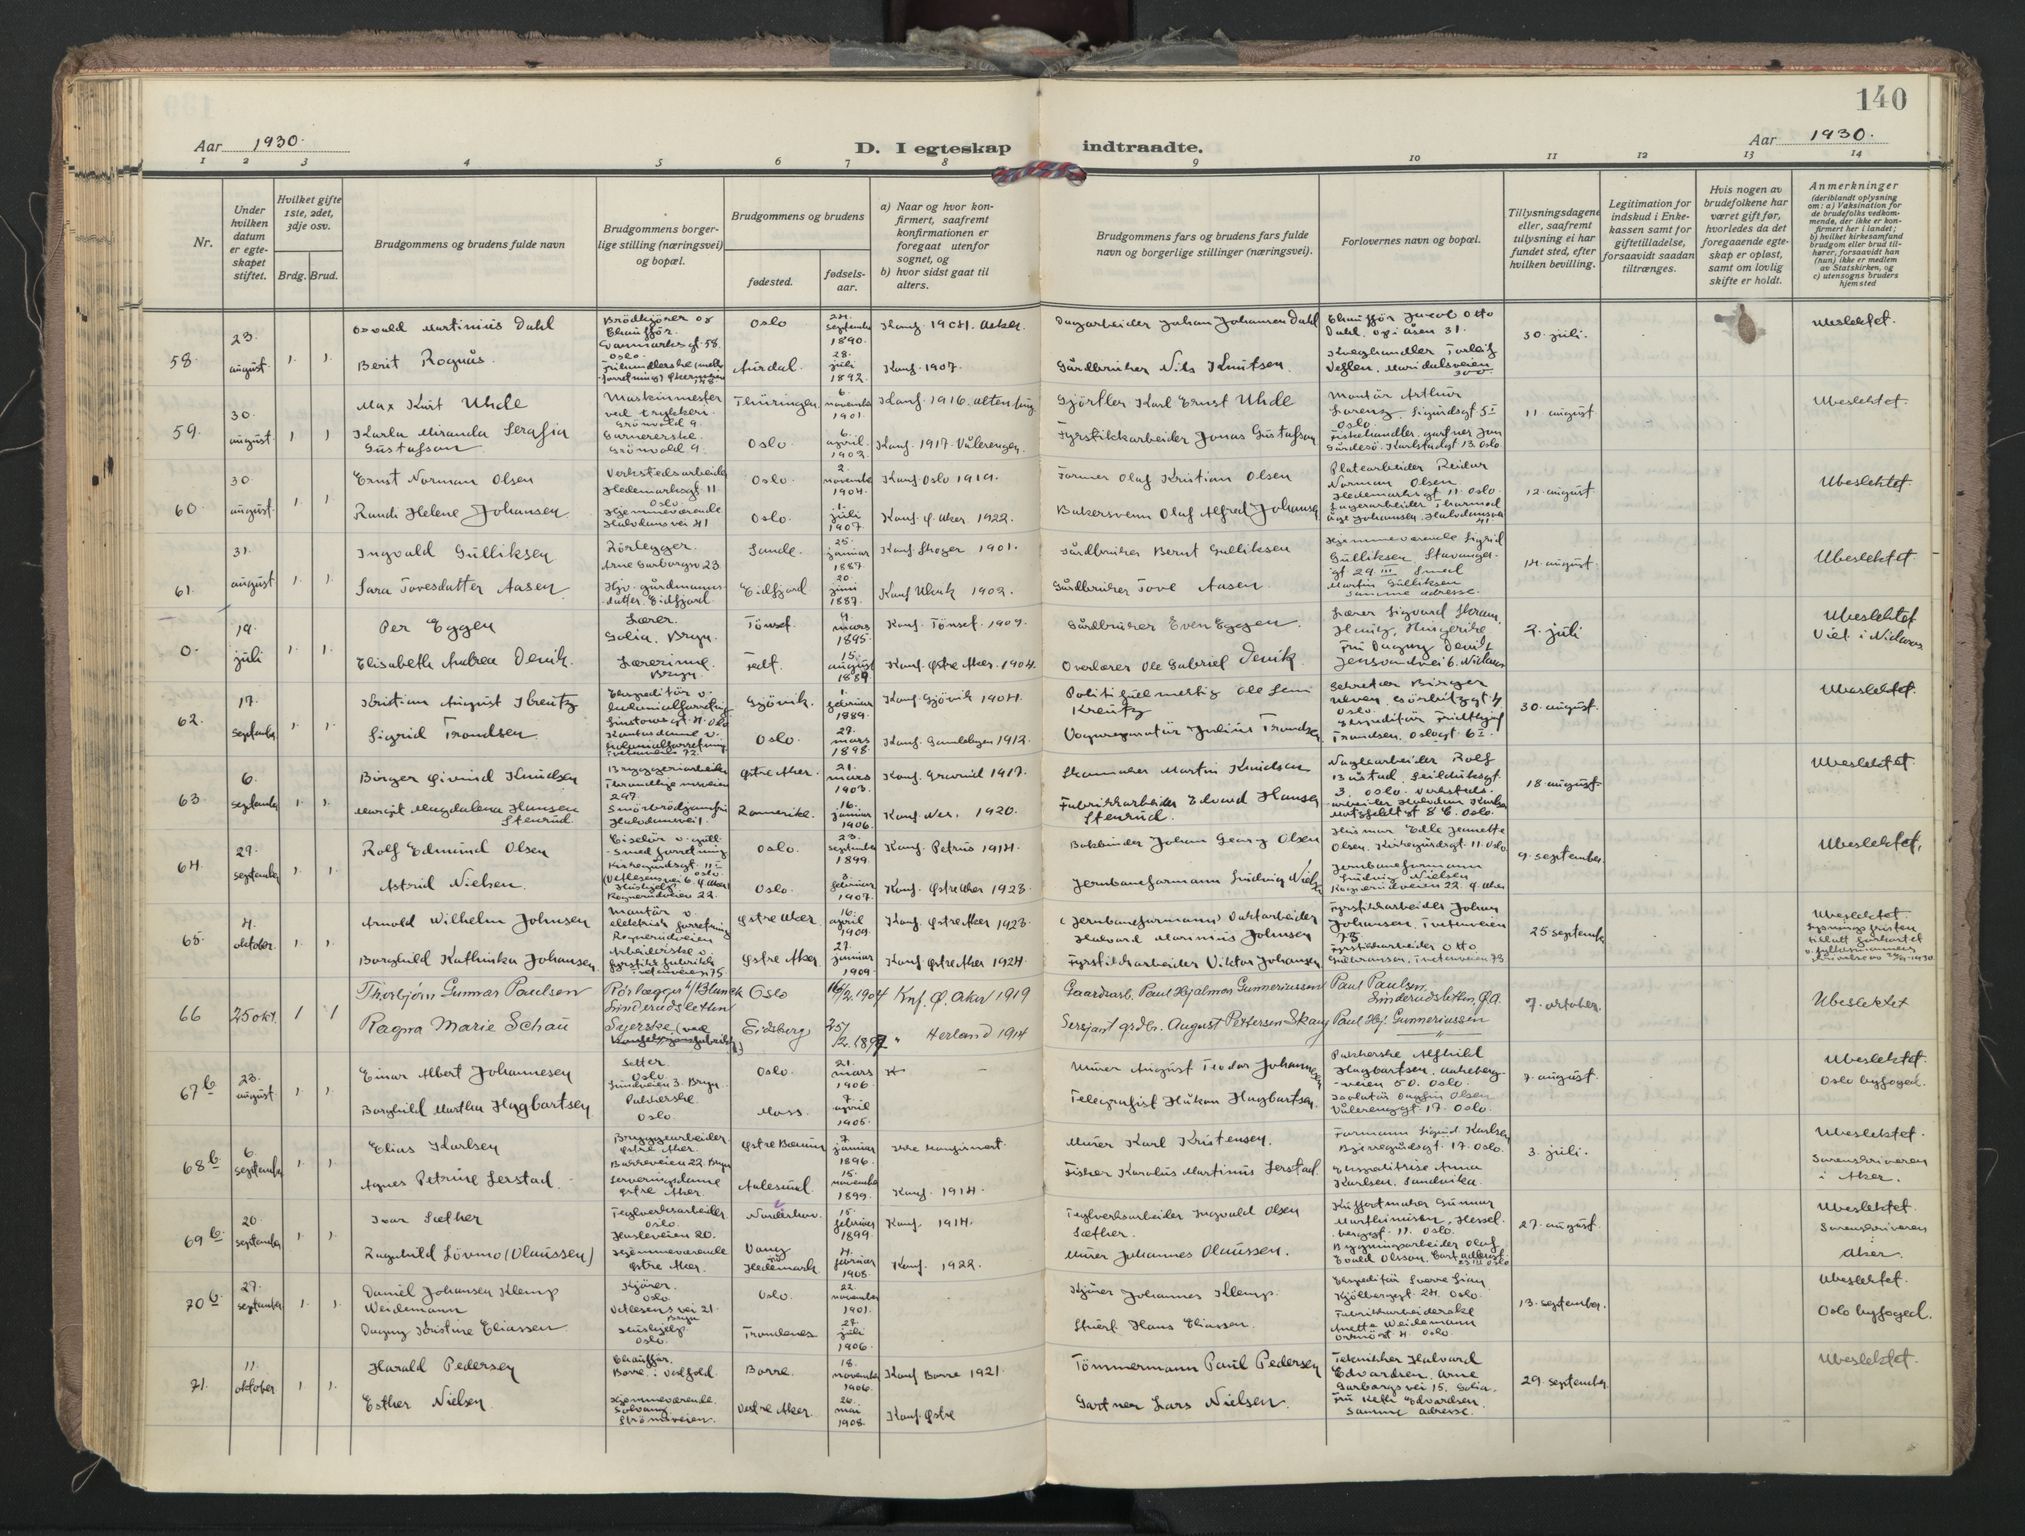 140
Aar 1930.
D. I egteskap indtraadte.
Aar 1930.
1 2 3 4 5 6 7 8 9 10 11 12 13 14
Nr.
Under hvilken datum er egteskapet stiftet.
Hvilket gifte 1ste, 2det, 3dje osv.
Brdg. Brud.
Brudgommens og brudens fulde navn
Brudgommens borgerlige stilling (næringsvei) og bopæl.
Brudgommens og brudens
fødested.
fødselsaar.
a) Naar og hvor konfirmert, saafremt konfirmationen er foregaat utenfor sognet, og
b) hvor sidst gaat til alters.
Brudgommens fars og brudens fars fulde navn og borgerlige stillinger (næringsvei).
Forlovernes navn og bopæl.
Tillysningsdagene eller, saafremt tillysning ei har fundet sted, efter hvilken bevilling.
Legitimation for indskud i Enkekassen samt for giftetilladelse, forsaavidt saadan tiltrænges.
Hvis nogen av brudefolkene har været gift før, hvorledes da det foregaaende egteskap er opløst, samt om lovlig skifte er holdt.
Anmerkninger
(deriblandt oplysning om: a) Vaksination for de brudefolks vedkommende, der ikke er konfirmert her i landet; b) hvilket kirkesamfund brudgom eller brud tilhører, forsaavidt han (hun) ikke er medlem av Statskirken, og c) utensogns bruders hjemsted
58. 23. august 1. 1.
Osvald Martinius Dahl Brödkjører og Chauffør. Oslo 24. september 1890. Konf. 1904. Aker. Dagarbeider Johan Johansen Dahl Chauffør Jacob Otto Dahl 30. juli. Ubeslektet.
Berit Rognås. Aurdal. 28. juli 1892. Konf. 1907. Gårdbruker Nils Knutsen. Maridalsveien 300
59. 30. august 1 1
Max Kurt Uhde Maskinmester Grönvold 9. Thüringen. 6. november 1901. Konf. 1916. Altenburg. Gjörtler Karl Ernst Uhde Montör Arthur Lorenz, Sigurdsgt 5 I Oslo 11 august. Ubeslektet.
Karla Miranda Serafia Gustafson Grönvold 9. Oslo. 6. april 1902. Konf. 1917. Vålerengen. Fyrstikkarbeider Jonas Gustafson Karlstadgt 13. Oslo.
60 30. august. 1 1.
Ernst Norman Olsen Verkstedsarbeider Hedemarksgt. 11 Oslo. Oslo. 2. november 1904. Konf. Oslo 1919. Former Olaf Kristian Olsen Platearbeider Reidar Norman Olsen Hedemarksgt 11. Oslo. 12. august Ubeslektet
Randi Helene Johansen Hjemmeværende Halvdansvei 41 Oslo. 1. juli 1907. Konf. Ø. Aker. 1922. Bakersvenn Olaf Alfred Johansen Lagerarbeider Thormod Aage Johansen. Halvdansvei 41.
61. 31. august 1. 1.
Ingvald Gulliksen Rörlegger. Arne Garborgv 23 Sande. 25. januar 1887. Konf. Skoger 1901. Gårdbruker Bernt Gulliksen Hjemmeværende Sigrid Gulliksen Stavangergt 29 III 14. august Ubeslektet
Sara Tovesdatter Aasen. Hjv. gårdmannsdatter. Eidfjord. Eidfjord 20. juni 1887. Konf. Ulvik 1902. Gårdbruker Tove Aasen. Smed Martin Gulliksen Samme adresse.
0. 19. juli 1. 1.
Per Eggen Lærer. Solia, Bryn. Tönset. 4. mars 1895. Konf. Tönset. 1909. Gårdbruker Even Eggen. Lærer Sigvard 2. juli Ubeslektet Viet i Nidaros
Elisabeth Andrea Devik. Lærerinne Bryn. 15. august 1889. Konf. Østre Aker. 1904. Overlærer Ole Gabriel Devik. Fru Dagny Devik
62. 17. september 1. 1.
Kristian August Kreutz Ekspeditör v. kolonialforretning Gjövik. 1. februar 1889. Konf. Gjövik 1904. Kreutz Sekretær Birger Oslo. 30 august. Ubeslektet.
Sigrid Trondsen. Kontordame v. kolonialforretning Oslo. 27. mars 1898. Konf. Gamlebyen 1912. Julius Trondsen Ekspeditör Fridthjof Trondsen, Oslogt 6 I.
63. 6. september 1. 1.
Börger Øivind Knudsen Bryggeriarbeider 297. Østre Aker. 21. mars 1903. Konf. Grorud 1917. Skomaker Martin Knudsen Rolf 18 august Ubeslektet
Margit Magdalena Hansen Stenrud. Smörbrödjomfru Halvdansvei 1. Romerike. 16. januar 1906. Konf. Nes. 1920. Fabrikkarbeider Edvard Hansen Stenrud. Oslo.
64. 27. september 1. 1.
Rolf Edmund Olsen Ciselör v. gullsmedforretning Kirkegårdsgt. 11 I Oslo Oslo. 23. september 1899. Konf. Petrus 1914. Bokbinder Johan Georg Olsen Olsen. Kirkegårdsgt. 11. Oslo 9. september Ubeslektet.
Astrid Nielsen. Hushjelp Rognerudveien 22. Oslo. 8. februar 1907. Konf. Østre Aker 1923 Jernbaneformann Ludvig Nielsen Jernbaneformann Ludvig Nielsen Rognerudveien 22. Ø. Aker
65. 4. oktober. 1. 1.
Arnold Wilhelm Johnsen Montör v. elektrisk forretning Rognerudveien Østre Aker. 16. april 1904. Konf. Østre Aker 1923. (Jernbaneformann) Vaktarbeider Halvard Marinius Johnsen Fyrstikkarbeider Johan Johansen. Tvetenveien 75 25 september Ubeslektet
Borghild Kathinka Johansen. Arbeiderske v. fyrstikkfabrikk Tvetenveien 75. Østre Aker. 27. januar 1909. Konf. Østre Aker 1924. Fyrstikkarbeider Viktor Johansen Fyrstikkarbeider Otto Gulbransen, Tvetenveien 73
66 25 okt. 1 1
Thorbjörn Gunnar Paulsen Rörlægger Linderudsletten Oslo 16/2. 1904 Knf. Ø. Aker 1919 Gaardsarb. Paul Hjalmar Gunneriussen Paul Paulsen, Linderudsletten, Ø.A. 7. oktober. Ubeslektet
Ragna Marie Schau Syerske Eidsberg 25/2. 1897 " Herland 1914 Sersjant grdbr. August Pettersen Skau Paul Hj. Gunneriussen "
67 b 23. august 1. 1.
Einar Albert Johannesen Setter Oslo Oslo. 21. mars 1906. Murer August Teodor Johannesen Pakkerske Alfhild Hagbartsen, Aakebergveien 50. Oslo. 7. august. Ubeslektet. Oslo byfoged.
Borghild Martha Hagbartsen Pakkerske Oslo. Moss. 7 april 1905. Telegrafist Håkon Hagbartsen. Isolatör Olsen Vålerenggt 17. Oslo.
68 b 6. september 1. 1.
Elias Karlsen Bryggearbeider. Østre Aker. Borreveien 22. Bryn Østre Bærum 7 januar 1896. Ikke konfirmert. Murer Karl Kristensen. Formann Sigurd Karlsen gt. 17. Oslo 3. juli. Ubeslektet. Sorenskriveren i Aker.
Agnes Petrine Serstad. Serveringsdame Østre Aker. Aalesund. 15. november 1899. Konf. 1914. Fisker Karolus Martinus Serstad. Ekspeditrise Anna Karlsen. Sandvika.
69 b 20. september 1. 1.
Ivar Sæther Teglverksarbeider Oslo. Hasleveien 20. Norderhov. 15. februar 1899. Konf. 1914. Teglverksarbeider Ingvald Olsen Sæther. Koffertmaker Gunnar Marthinusen, Hesselbergsgt. 11. Oslo. 27. august. Ubeslektet. Sorenskriveren i Aker.
Ragnhild Lövmo (Olaussen) Hjemmeværende Østre Aker. Vang Hedemark. 4. februar 1908. Konf. 1922. Murer Johannes Olaussen. Bygningsarbeider Olaf Evald Olsson.
70 b 27. september 1. 1.
Daniel Johansen Klemp Weidemann Kjörer. Oslo Vetlesens vei 21. Bryn Oslo. 22. november 1901. Kjörer Johannes Klemp. Ekspeditör Sverre Lian Kjölberggt. 24. Oslo. 13. september. Ubeslektet. Oslo byfoged.
Dagny Kristine Eliassen Hushjelp Oslo. Trondenes 27. juli 1906. Stuert Hans Eliassen. Fabrikkarbeiderske Anetta Weidemann 4. Oslo.
71. 11. oktober 1. 1.
Harald Pedersen Chauffør. Borre i Vestfold. Borre. 18. november 1906. Konf Borre 1921. Tömmermann Paul Pedersen Tekniker Halvard Edvardsen. Arne Garborgs vei 15. Solia. 29. september. Ubeslektet.
Esther Nielsen. Hjemmeværende. Solvang Strömsveien. Vestre Aker. 26. mai 1908. Konf. Østre Gartner Lars Nielsen. Fru Edvardsen. Samme adresse.